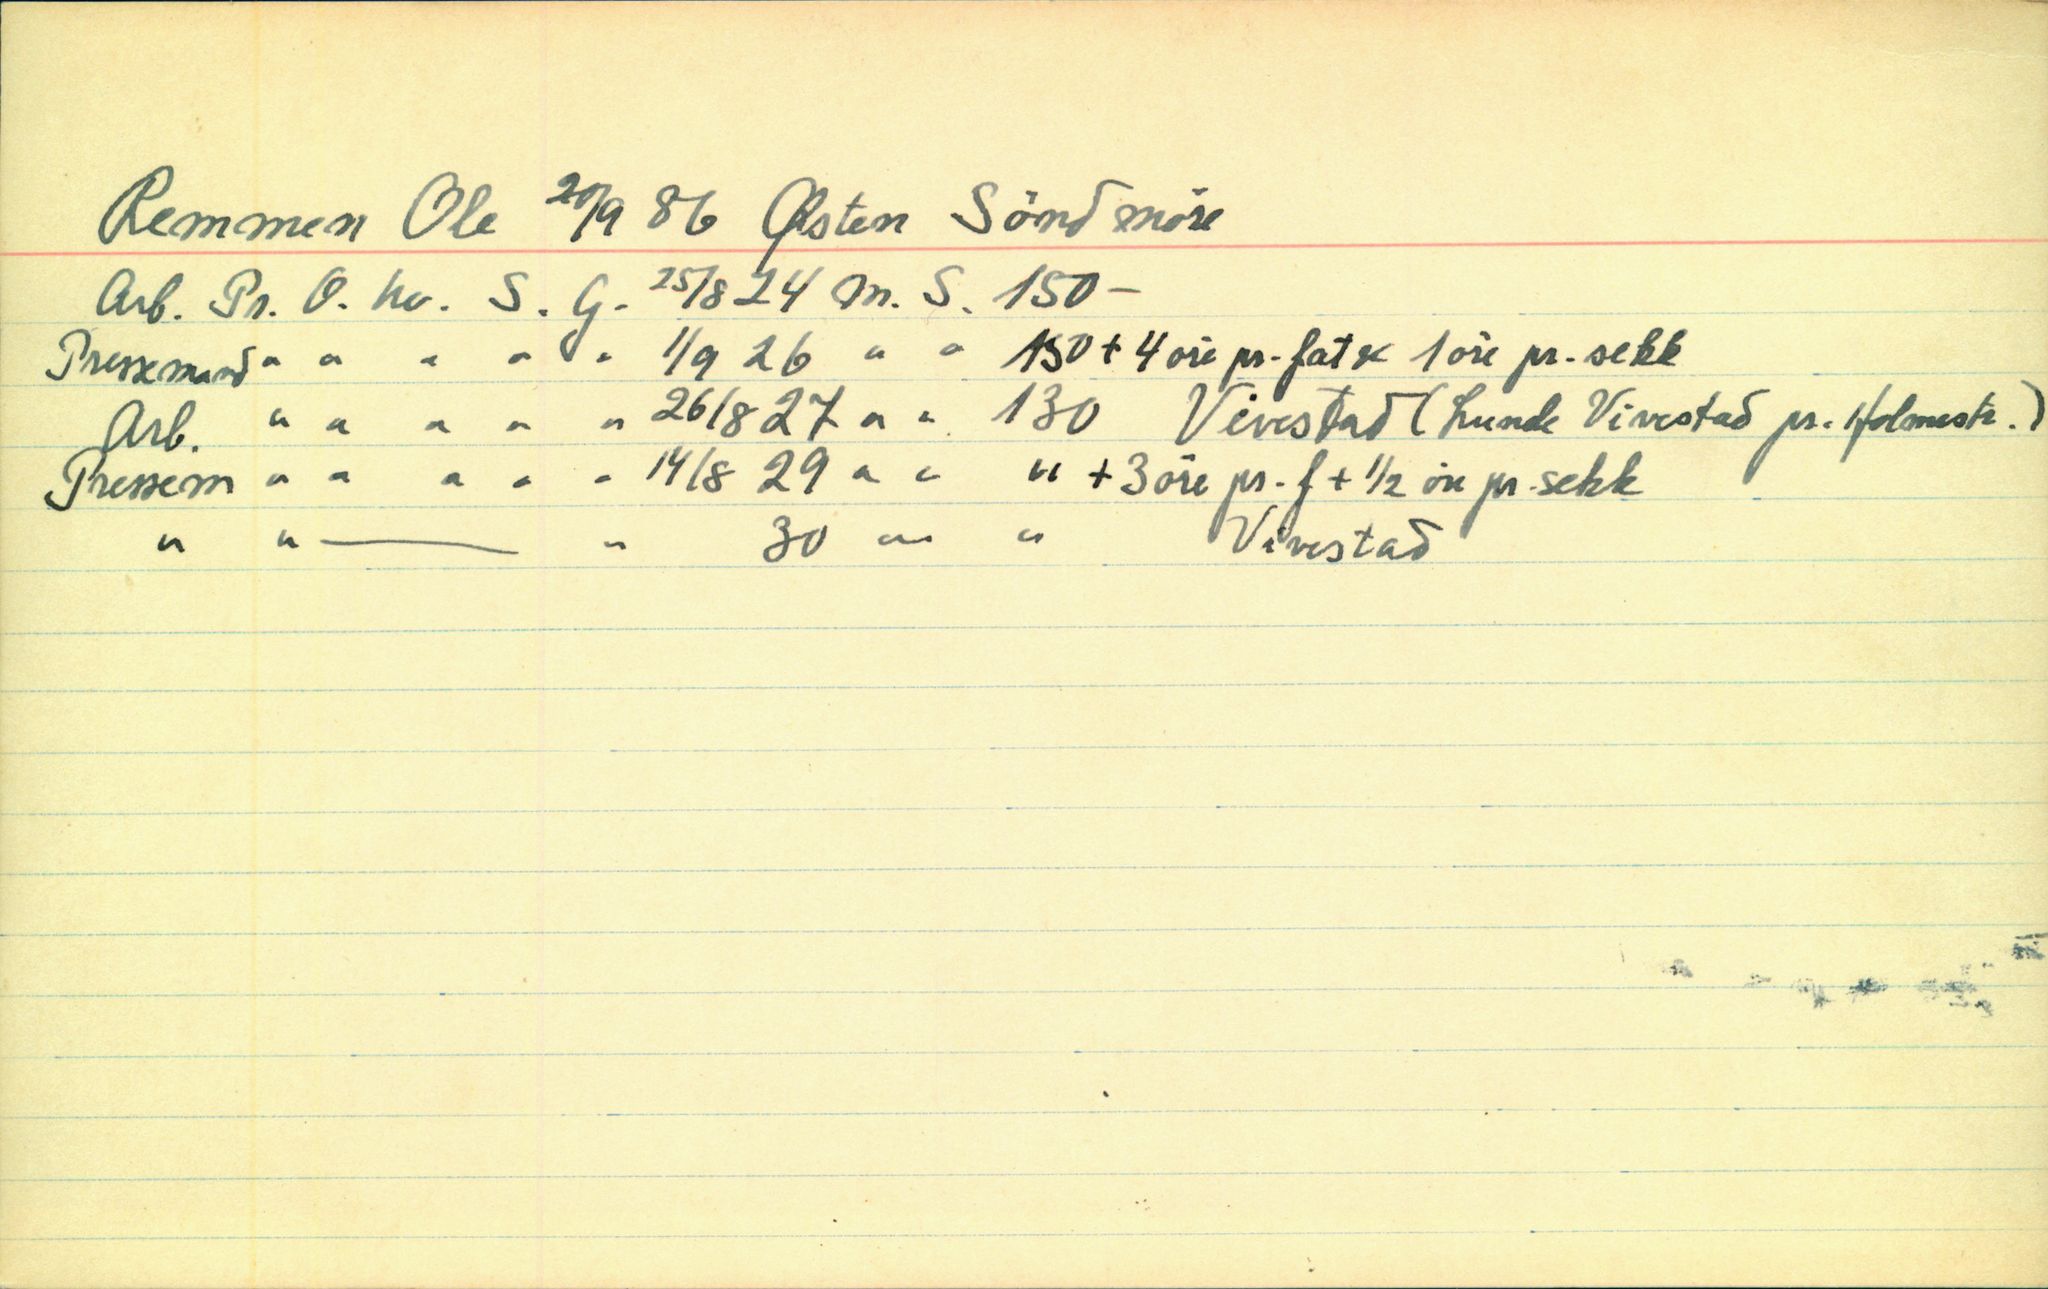 Remmen Ole 20/9 86 Ørsten Söndmöre
Arb. Pr. O. hv. S. G. 25/8 24 m. S. 150 –
Pressemand " " " " " 1/9 26 " " 150 + 4 öre pr. fat & 1 öre pr. sekk
Arb. " " " " " 26/8 27 " " 130 Vivestad (Lunde Vivestad pr. Holmestr.)
Pressem " " " " " 14/8 29 " " " + 3 öre pr. f + 1/2 öre pr. sekk
" " — " 30 " " " Vivestad